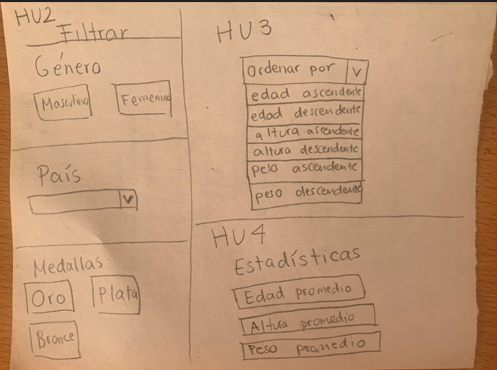 HU2
Filtrar
Género
Masculino Femenino
País
Medallas
Oro Plata
Bronce
HU3
Ordenar por
edad ascendente
edad descendente
altura ascendente
altura descendente
peso ascendente
peso descendente
HU4
Estadísticas
Edad promedio
Altura promedio
Peso promedio